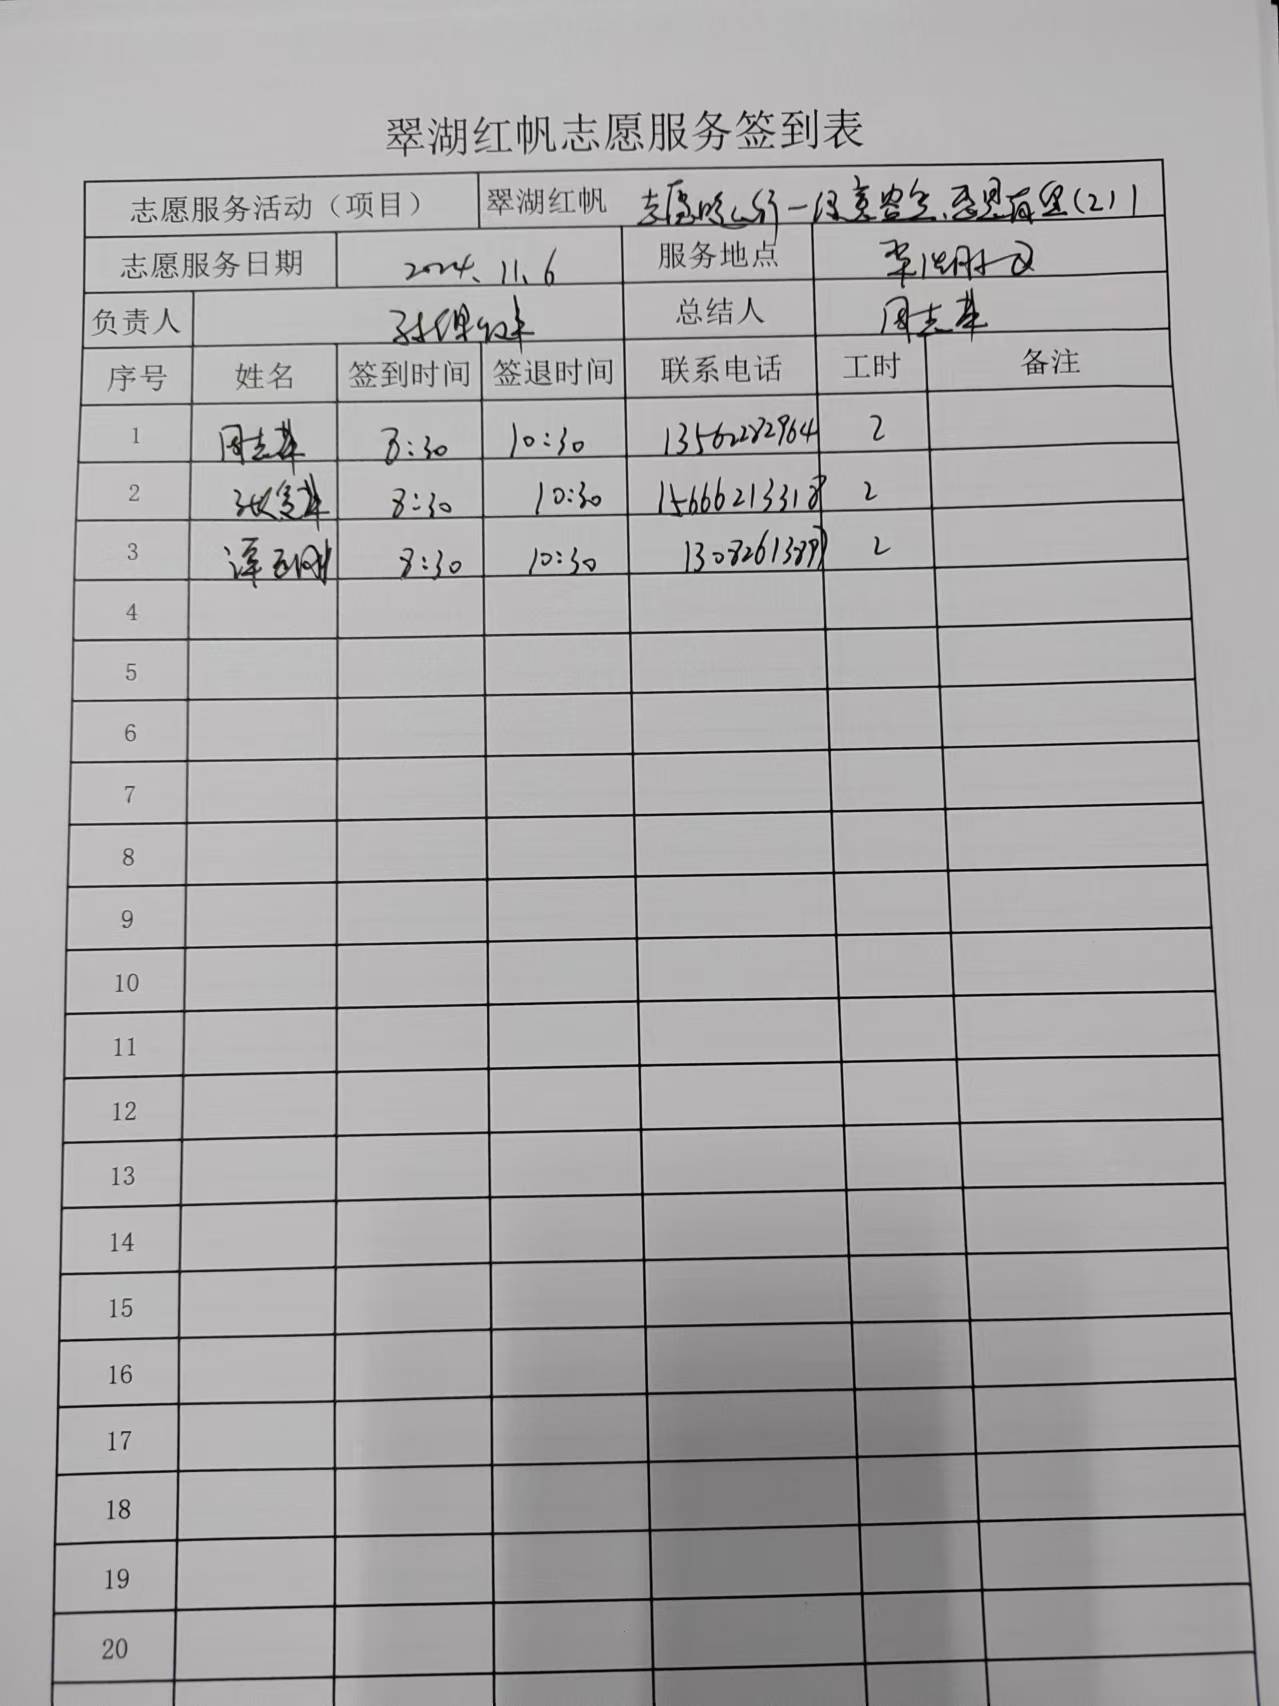 翠湖红帆志愿服务签到表
志愿服务活动（项目） 翠湖红帆 志愿 (21)
志愿服务日期 2024.11.6 服务地点
负责人 总结人 周志华
序号 姓名 签到时间 签退时间 联系电话 工时 备注
1 周志华 8:30 10:30 13562282964 2
2 8:30 10:30 15666213318 2
3 谭 8:30 10:30 2
4
5
6
7
8
9
10
11
12
13
14
15
16
17
18
19
20